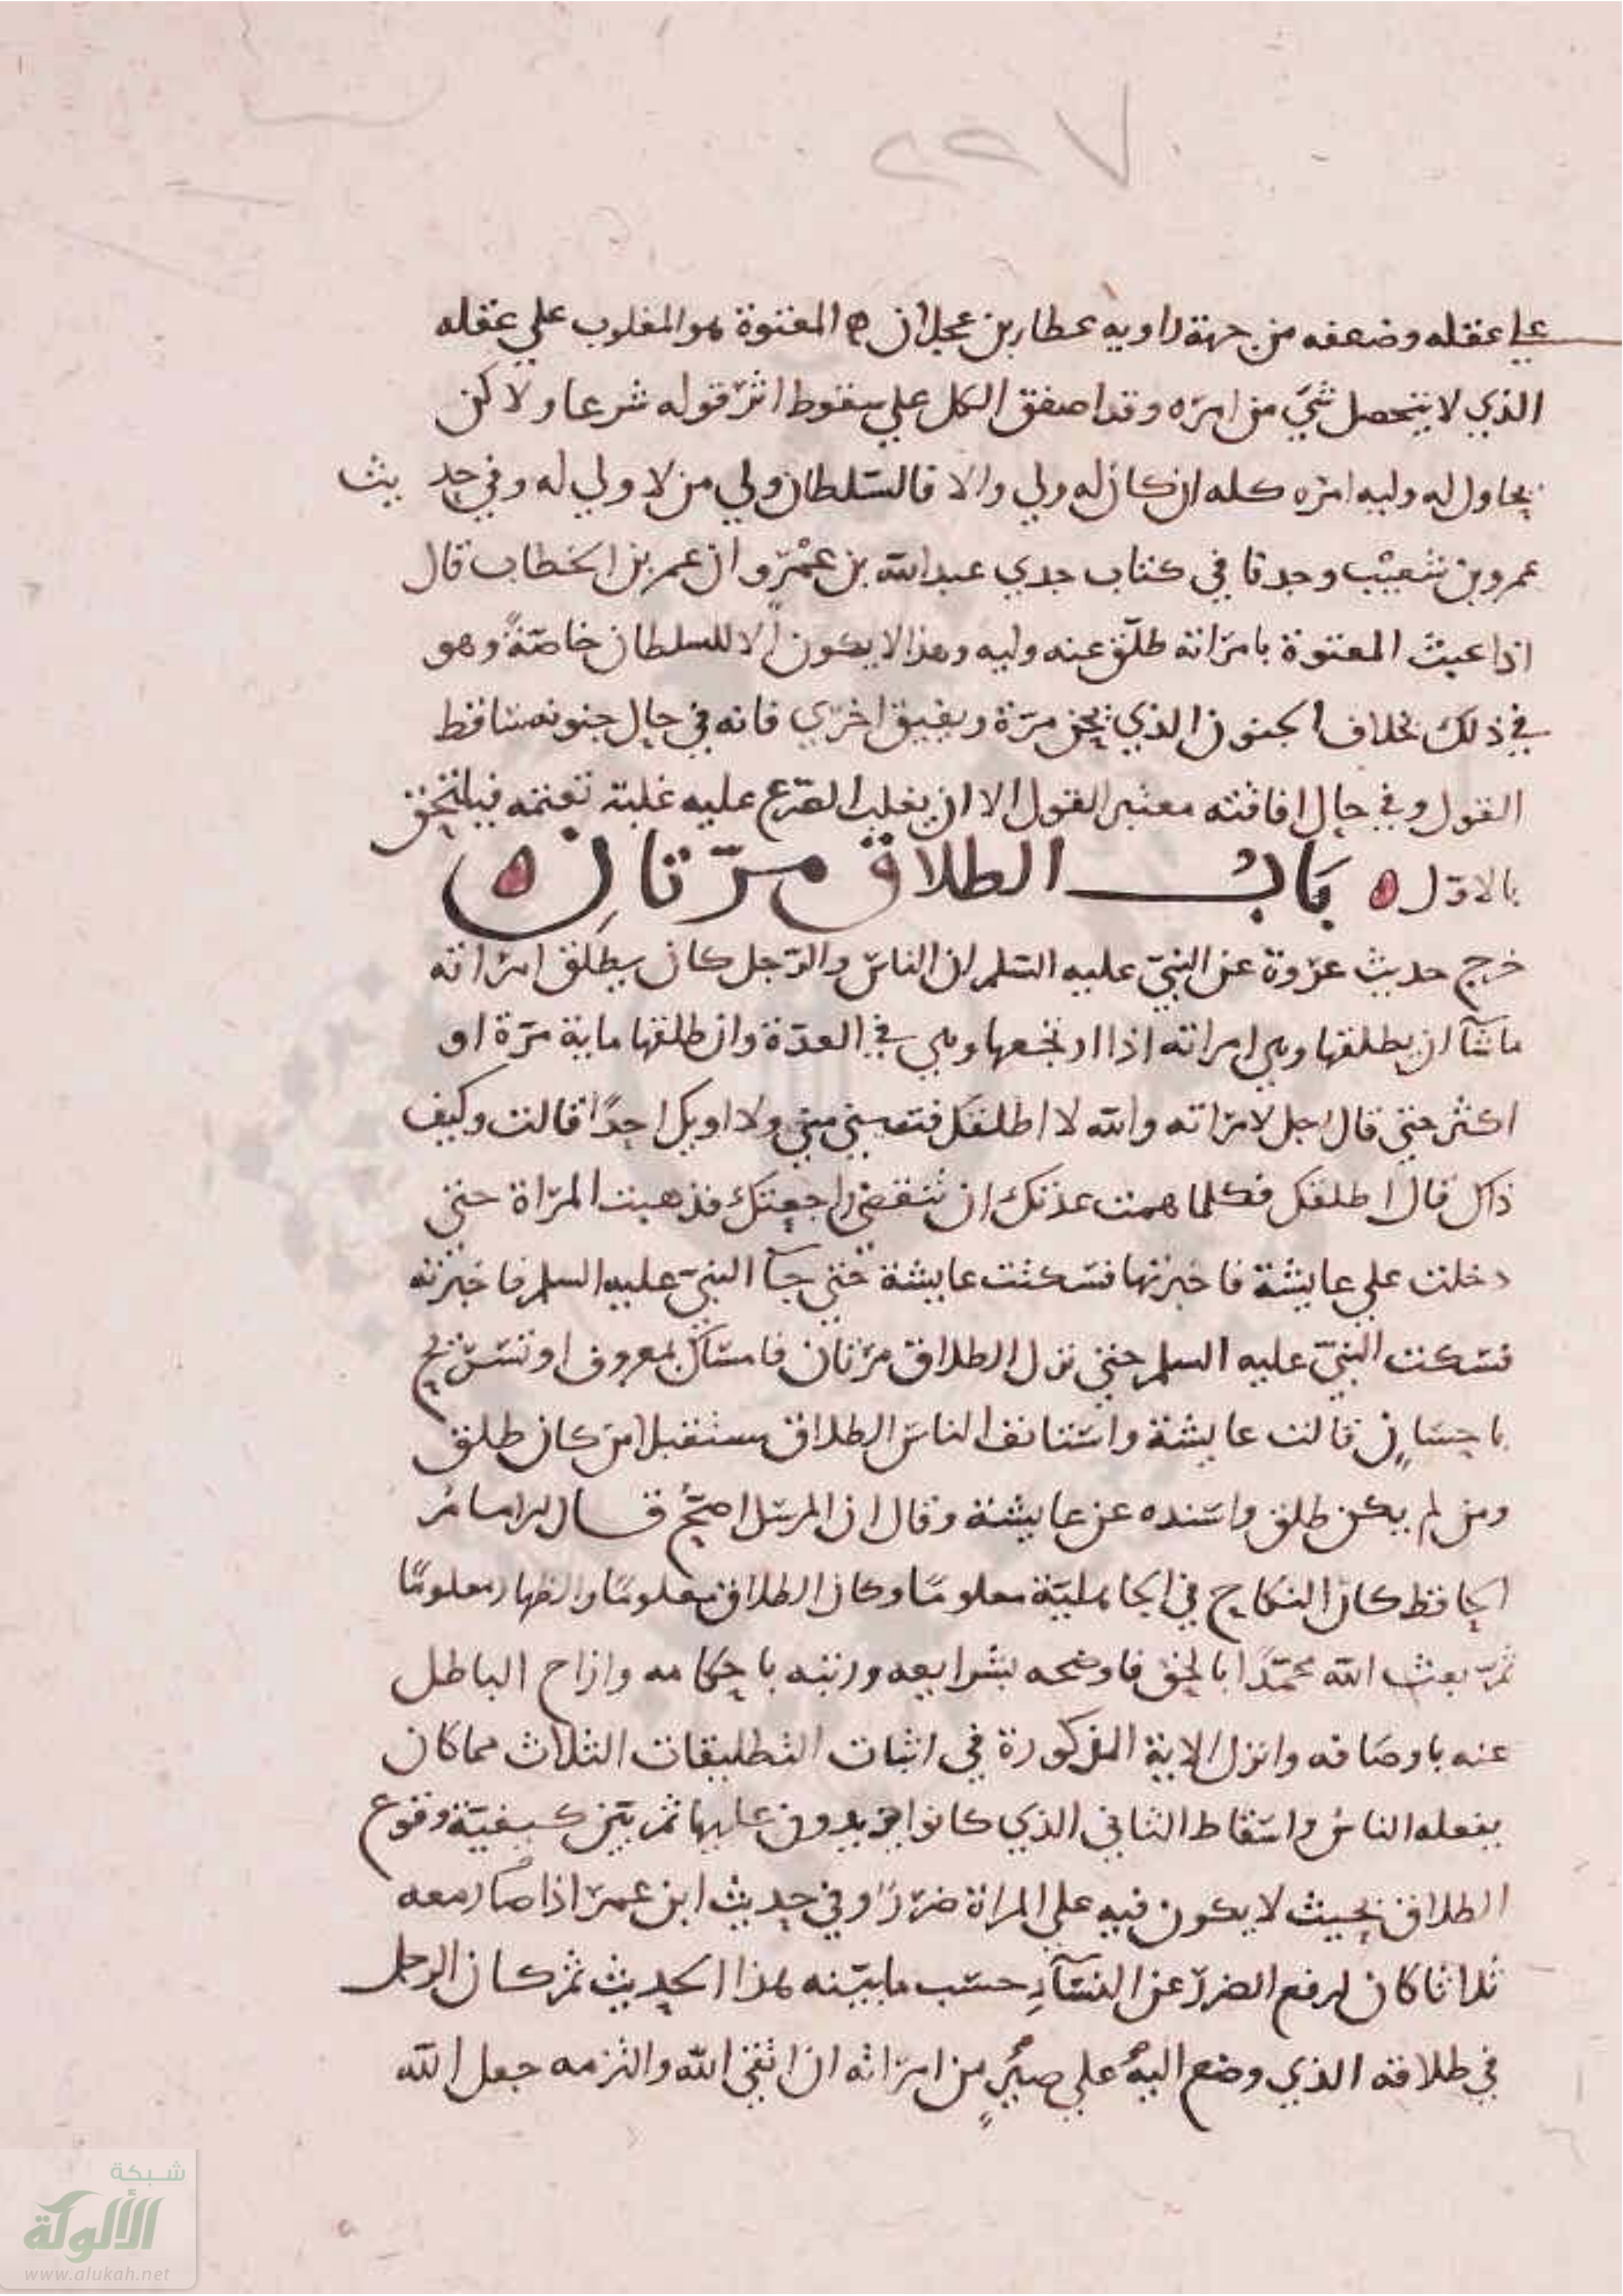 علي عقله وضعفه من جهة راويه عطا بن عجلان ه المعتوة هو المغلوب علي عقله
الذي لا يتحصل شي من امره وقد اصفق الكل علي سقوط اثر قوله شرعا ولاكن
يحاول له وليه امره كله ان كان له ولي والا فالسلطان ولي من لا ولي له وفي حديث
عمرو بن شعيب وجدنا في كتاب جدي عبد الله بن عمرو ان عمر بن الخطاب قال
اذا عبث المعتوة بامراته طلق عنه وليه وهذا لا يكون الا للسلطان خاصة وهو
في ذلك بخلاف المجنون الذي يجن مرة ويفيق اخري فانه في حال جنونه ساقط
القول وفي حال افاقته معتبر القول الا ان يغلب الصرع عليه غلبة تغمه فيلتحق
بالاول ه باب الطلاق مرتان ه
خرج حديث عروة عن النبي عليه السلم ان الناس والرجل كان يطلق امراته
ما شآ ان يطلقها وهي امراته اذا ارتجعها وهي في العدة وان طلقها ماية مرة او
اكثر حتي قال رجل لامراته والله لا اطلقك فتبيني مني ولا اويك احدًا قالت وكيف
ذاك قال اطلقك فكلما همت عدتك ان تنقضي راجعتك فذهبت المراة حتي
دخلت علي عايشة فاخبرتها فسكتت عايشة حتي جآ النبي عليه السلم فاخبرته
فسكت النبي عليه السلم حتي نزل الطلاق مرتان فامساك بمعروف او تسريح
باحسان قالت عايشة واستانف الناس الطلاق مستقبلا من كان طلق
ومن لم يكن طلق واسنده عن عايشة وقال ان المرسل اصح قال الامام
الحافظ كان النكاح في الجاهلية معلومًا وكان الطلاق معلومًا والظهار معلومًا
ثم بعث الله محمدًا بالحق فاوضحه بشرايعه ورتبه باحكامه وازاح الباطل
عنه باوصافه وانزل الاية المذكورة في اثبات التطليقات الثلاث مما كان
يفعله الناس واسقاط الثاني الذي كانوا يزيدون عليها ثم بين كيفية وقوع
الطلاق بحيث لا يكون فيه علي المراة ضررًا وفي حديث ابن عمر اذا صار معه
ثلاثا كان لرفع الضرر عن النسآ حسب ما بينه هذا الحديث ثم كان الرجل
في طلاقه الذي وضع اليه علي صبر من امراته ان اتقي الله والتزمه جعل الله
شبكة
الألوكة
www.alukah.net